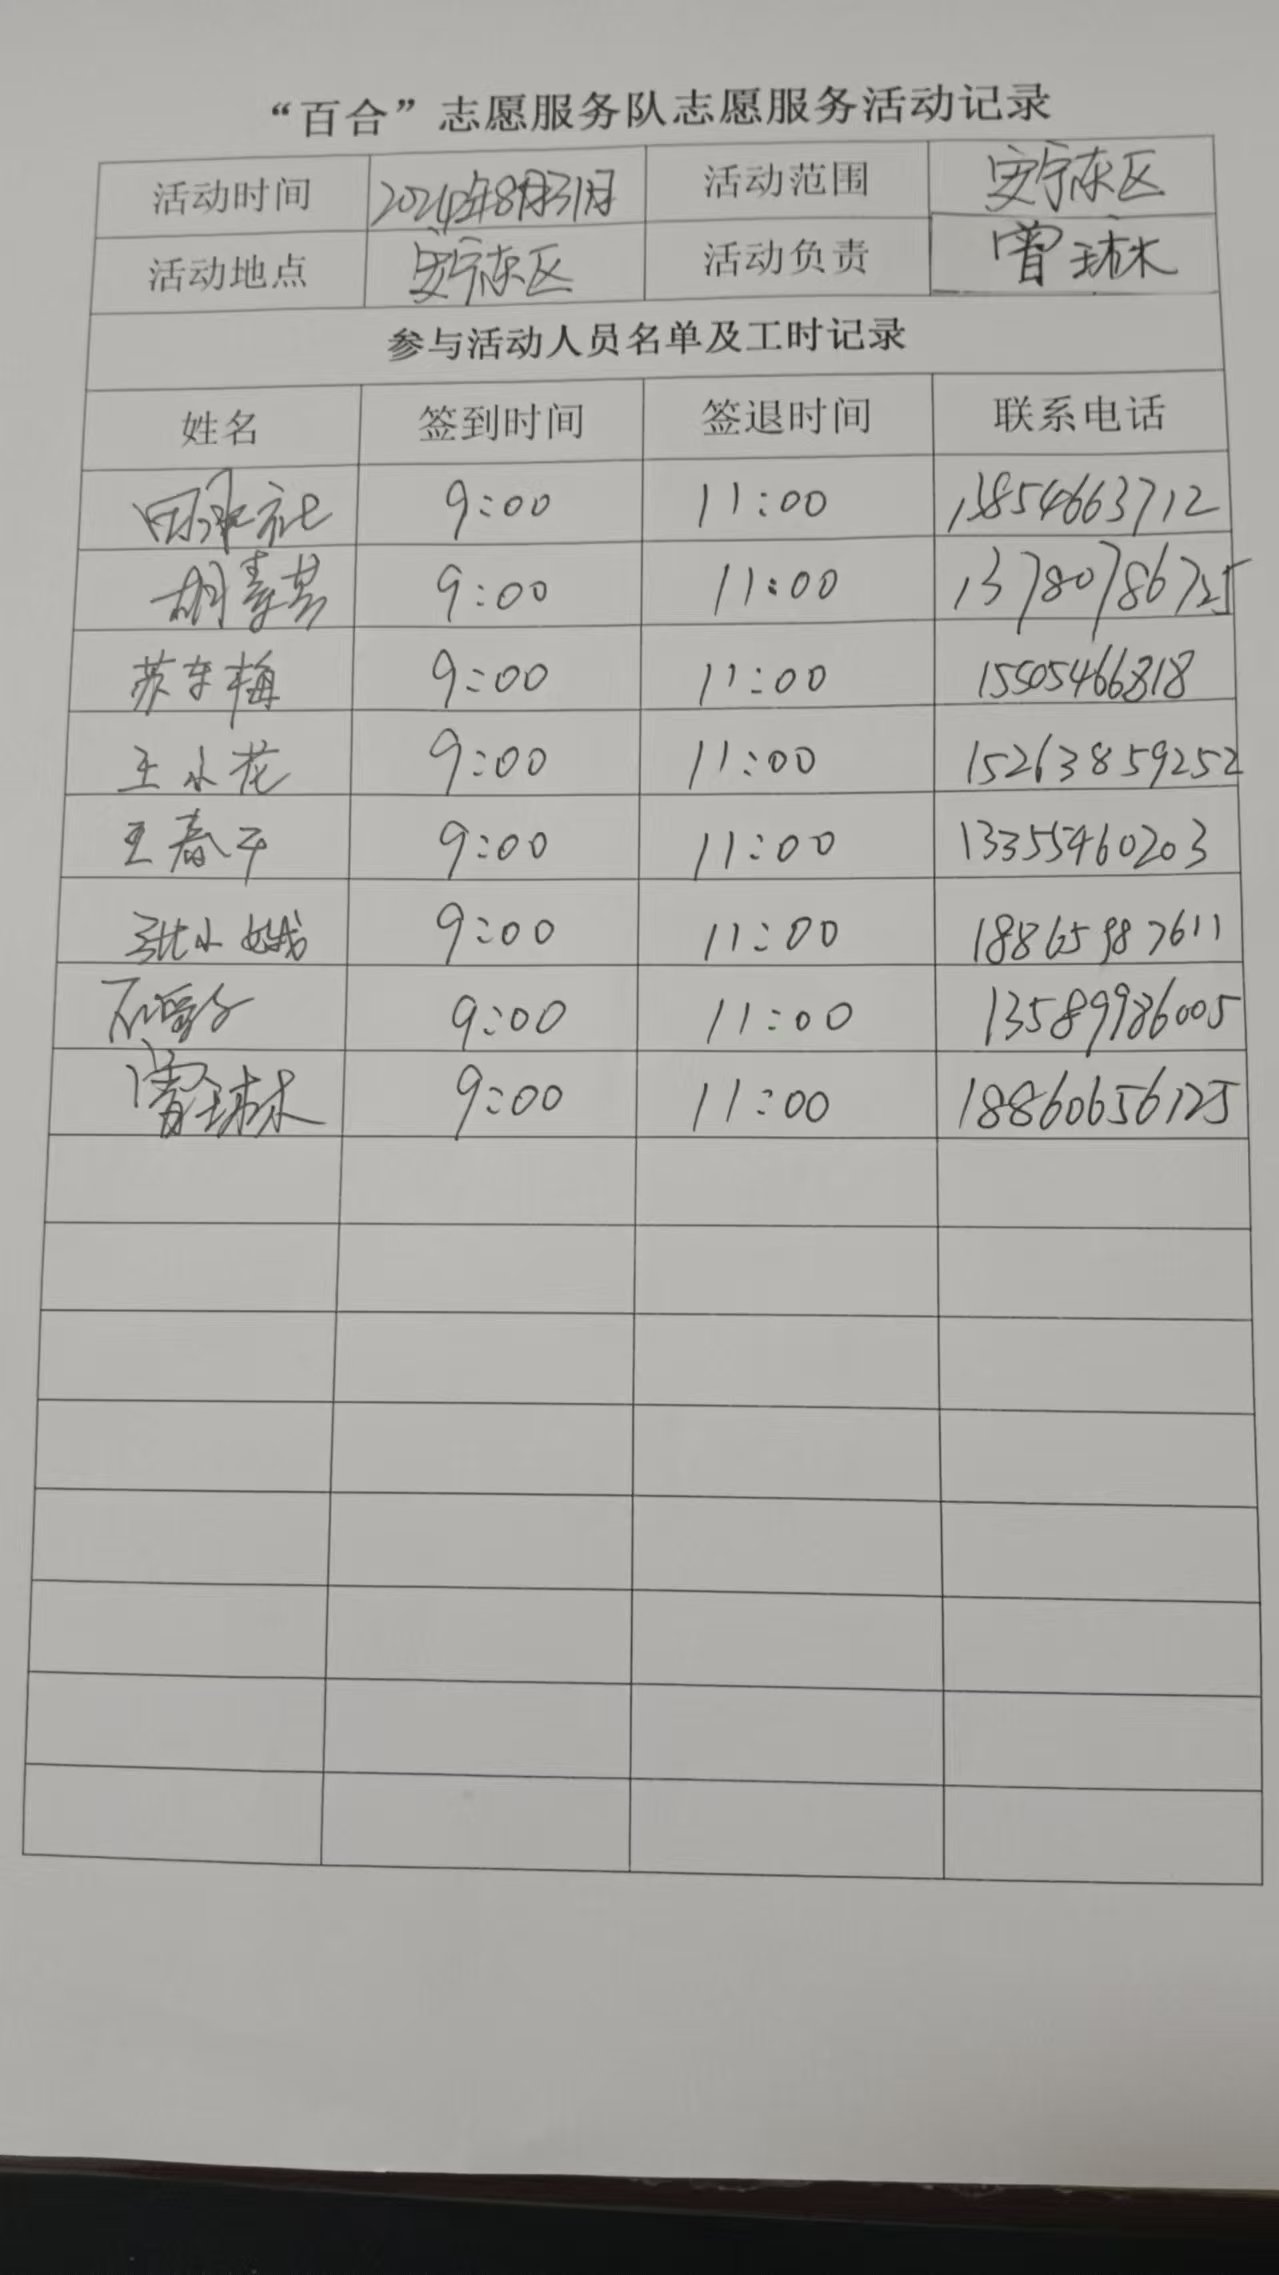 “百合”志愿服务队志愿服务活动记录
活动时间 2024年8月31日 活动范围 安宁东区
活动地点 安宁东区 活动负责 曾琳
参与活动人员名单及工时记录
姓名 签到时间 签退时间 联系电话
9:00 11:00 13854663712
胡春芳 9:00 11:00 13780786725
苏冬梅 9:00 11:00 15505466818
王水花 9:00 11:00 15263859252
王春平 9:00 11:00 13355460203
张小娥 9:00 11:00 18865987611
9:00 11:00 13589986005
曾琳 9:00 11:00 18860656125